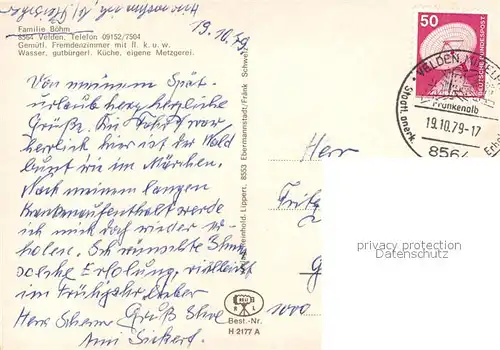 19.10.79
Familie Böhm
8564 Velden, Telefon 09152/7504
Gemütl. Fremdenzimmer mit fl. k. u. w.
Wasser, gutbürgerl. Küche, eigene Metzgerei.
Von meinem Spät-
urlaub herzl herzliche
Grüße. Die Fahrt war
herrlich hier ist der Wald
bunt wie im Märchen.
Nach meinem langen
Krankenaufenthalt werde
ich mich doch wieder er-
holen. Ich wünschte Ihnen
solche Erholung, vielleicht
im Frühjahr. Lieber
Herr Gruß Ihre
Reinhold Lippert, 8553 Ebermannstadt/Fränk Schweiz
Best.-Nr.
H 2177 A
50
DEUTSCHE BUNDESPOST
VELDEN
Frankenalb
19.10.79-17
8564
Herr
Fritz
privacy protection
Datenschutz
G
1000